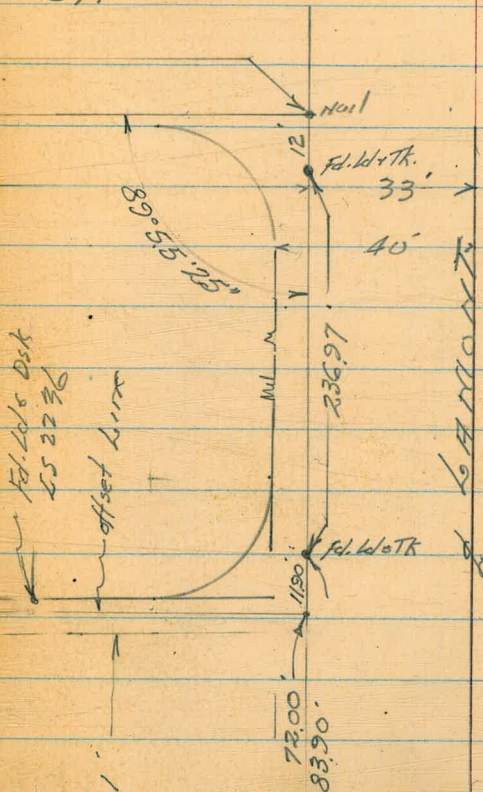 Nail
12'
Fd. Ld & Tk.
33'
40'
89°55'25"
236.97
Fd. Ld & Dsk
LS 2236
offset Line
℄ LAMONT
Fd. Ld & Tk
11.90'
72.00'
83.90'